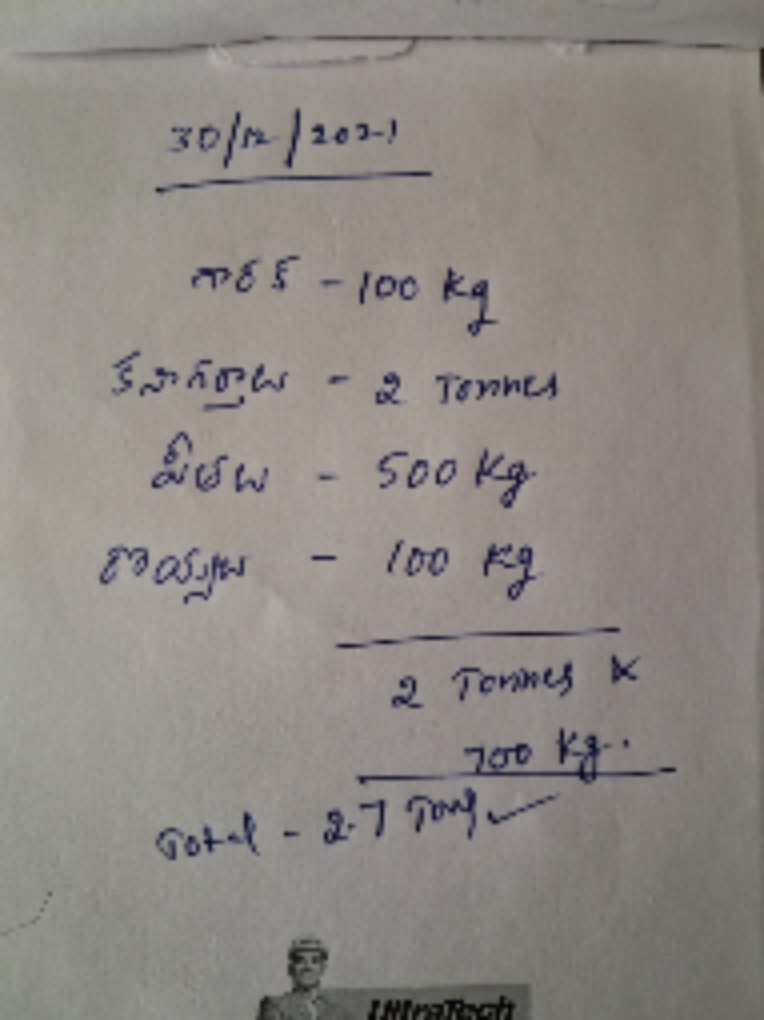 30/12/2021
నారక్ - 100 Kg
కనాగర్తలు - 2 Tonnes
పీతలు - 500 Kg
- 100 Kg
2 Tonnes &
700 Kg.
Total - 2.7 Tons ✓
UltraTech